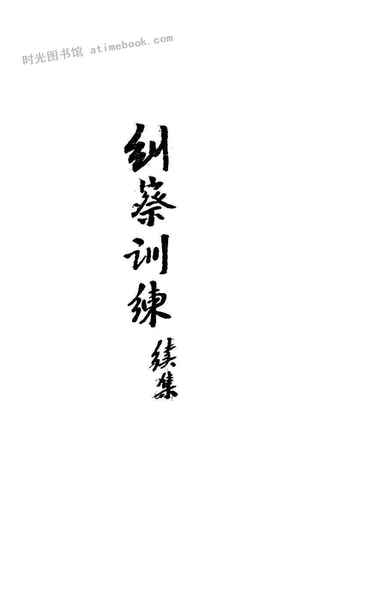 时光图书馆 atimebook.com
纠察训练
续集